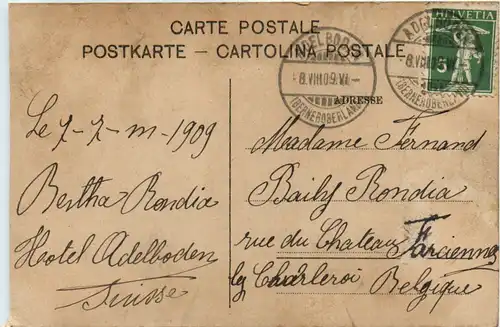 CARTE POSTALE
POSTKARTE – CARTOLINA POSTALE
ADELBODEN
-8.VIII.09.VI-
(BERNEROBERLAND)
HELVETIA
5
ADELBODEN
-8.VIII.09.VI-
(BERNEROBERLAND)
ADRESSE
Le 7-7-m-1909
Bertha-Rondia
Hootel Adelboden
Suisse
Madame Fernand
Baily Rondia
rue du Chateau Farciennes
lg Charleroi
Belgique